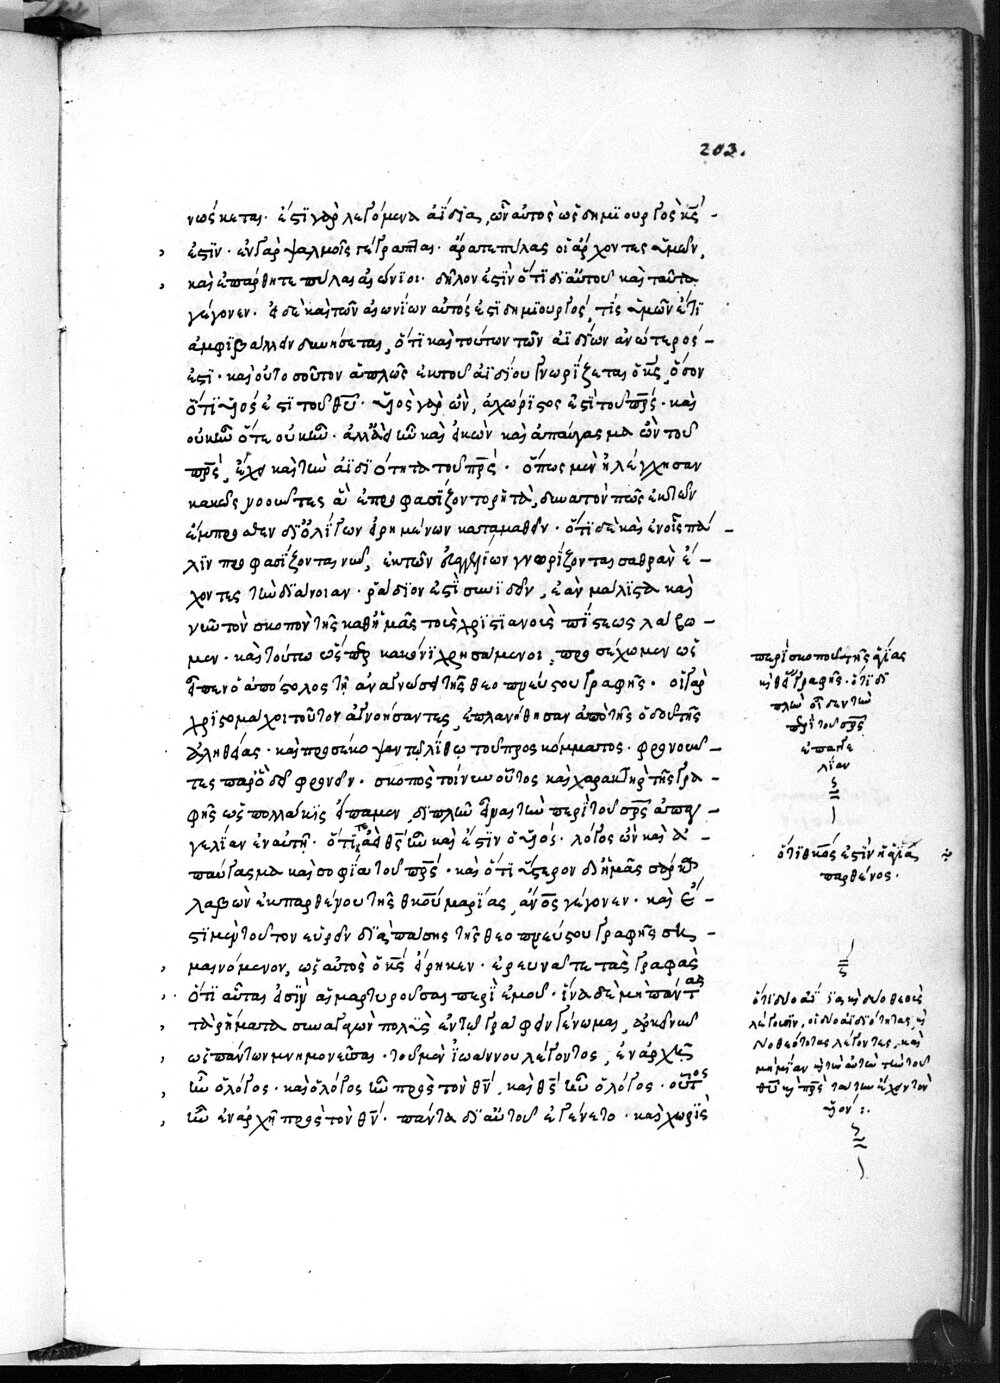 203.
νώσκεται· ἔστι γὰρ λεγόμενα ἀΐδια, ὧν αὐτὸς ὡς δημιουργὸς κ̅ς̅
ἐστὶν· ἐν γὰρ ψαλμοῖς γέγραπται· ἄρατε πύλας οἱ ἄρχοντες ὑμῶν,
καὶ ἐπάρθητε πύλαι αἰώνιοι· δῆλον ἐστὶν ὅτι δι' αὐτοῦ καὶ ταῦτα
γέγονεν· εἰ δὲ καὶ τῶν αἰωνίων αὐτός ἐστι δημιουργός, τίς ἡμῶν ἔτι
ἀμφιβάλλειν δυνήσεται, ὅτι καὶ τούτων τῶν ἀϊδίων ἀνώτερός
ἐστι· καὶ οὐ τοσοῦτον ἁπλῶς ἐκ τοῦ ἀϊδίου γνωρίζεται ὁ κ̅ς̅, ὅσον
ὅτι υἱός ἐστι τοῦ θ̅υ̅· υἱὸς γὰρ ὢν, ἀχώριστός ἐστι τοῦ π̅ρ̅ς̅· καὶ
οὐκ ἦν ὅτε οὐκ ἦν· ἀλλ' ἀεὶ ἦν καὶ εἰκὼν καὶ ἀπαύγασμα ὢν τοῦ
π̅ρ̅ς̅, ἔχει καὶ τὴν ἀϊδιότητα τοῦ π̅ρ̅ς̅· ὅπως μὲν ἠλέγχησαν
κακῶς νοοῦντες ἃ ἐπροφασίζοντο ῥητὰ, δυνατὸν πῶς ἐκ τῶν
ἔμπροσθεν δι' ὀλίγων εἰρημένων καταμαθεῖν· ὅτι δὲ καὶ ἐν οἷς πά
λιν προφασίζονται νῦν, ἐκ τῶν εὐαγγελίων γνωρίζονται σαθρὰν ἔ
χοντες τὴν διάνοιαν· ῥᾴδιον ἐστὶ συνιδεῖν, ἐὰν μάλιστα καὶ
νῦν τὸν σκοπὸν τῆς καθ' ἡμᾶς τοὺς χριστιανοὺς πίστεως λάβω
μεν· καὶ τούτῳ ὥσπερ κανόνι χρησάμενοι, προσέχωμεν ὡς
εἶπεν ὁ ἀπόστολος τῇ ἀναγνώσει τῆς θεοπνεύστου γραφῆς· οἱ γὰρ
χριστομάχοι τοῦτον ἀγνοήσαντες, ἐπλανήθησαν ἀπὸ τῆς ὁδοῦ τῆς
ἀληθείας· καὶ προσέκοψαν τῷ λίθῳ τοῦ προσκόμματος· φρονοῦν
τες παρ' ὃ δεῖ φρονεῖν· σκοπὸς τοίνυν οὗτος καὶ χαρακτὴρ τῆς γρα
φῆς ὡς πολλάκις εἴπαμεν, διπλῶν εἶναι τὴν περὶ τοῦ σ̅ρ̅ς̅ ἐπαγ
γελίαν ἐν αὐτῇ· ὅτι τε ἀεὶ θ̅ς̅ ἦν καὶ ἔστιν ὁ υἱός· λόγος ὢν καὶ ἀ
παύγασμα καὶ σοφία τοῦ π̅ρ̅ς̅· καὶ ὅτι ὕστερον δι' ἡμᾶς σάρκα
λαβὼν ἐκ παρθένου τῆς θ̅κ̅ο̅υ̅ μαρίας, ἄν̅ο̅ς̅ γέγονεν· καὶ ἔ
στι μὲν τοῦτον εὑρεῖν διὰ πάσης τῆς θεοπνεύστου γραφῆς ση
μαινόμενον, ὡς αὐτὸς ὁ κ̅ς̅ εἴρηκεν· ἐρευνᾶτε τὰς γραφὰς
ὅτι αὗται εἰσὶν αἱ μαρτυροῦσαι περὶ ἐμοῦ· ἵνα δὲ μὴ πάντα
τὰ ῥήματα συναγαγὼν πολὺς ἐν τῷ γράφειν γένωμαι, ἀρκεῖν
ὡς πάντων μνημονεῦσαι· τοῦ μὲν ἰωάννου λέγοντος, ἐν ἀρχῇ
ἦν ὁ λόγος· καὶ ὁ λόγος ἦν πρὸς τὸν θ̅ν̅, καὶ θ̅ς̅ ἦν ὁ λόγος· οὗτος
ἦν ἐν ἀρχῇ πρὸς τὸν θ̅ν̅· πάντα δι' αὐτοῦ ἐγένετο· καὶ χωρὶς
περὶ σκοποῦ τῆς ἁγίας
γραφῆς· ὅτι δι
πλῶν τὴν
περὶ τοῦ σ̅ρ̅ς̅
ἐπαγγε
λίαν
ὅτι θ̅κ̅ο̅ς̅ ἐστὶν ἡ ἁγία
παρθένος·
λέγουσιν, οἱ δύο ἀϊδιότητας
δύο θεότητας λέγοντες, καὶ
τοῦ
θ̅υ̅ καὶ π̅ρ̅ς̅ ἔχοντον
υἱόν :.